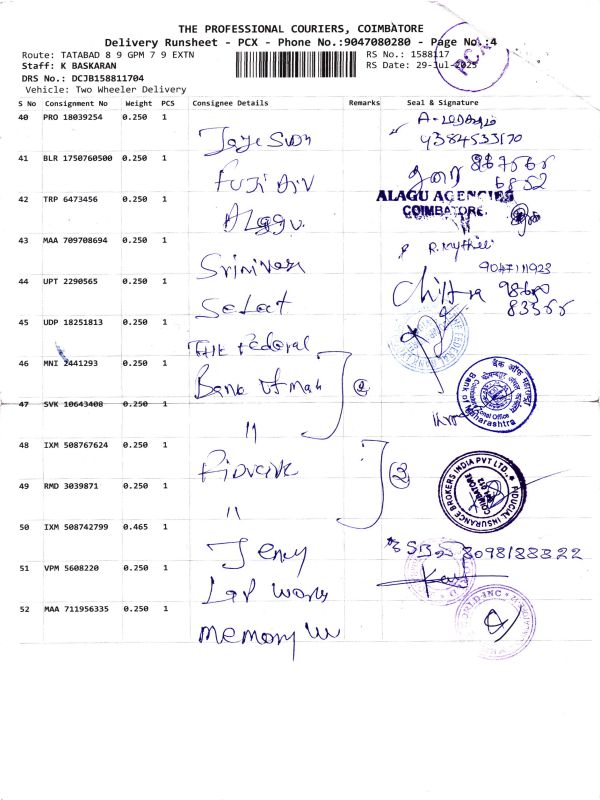 THE PROFESSIONAL COURIERS, COIMBATORE
Delivery Runsheet - PCX - Phone No.:9047080280 - Page No.:4
PCX
Route: TATABAD 8 9 GPM 7 9 EXTN
RS No.: 1588117
Staff: K BASKARAN
RS Date: 29-Jul-2025
DRS No.: DCJB158811704
Vehicle: Two Wheeler Delivery
S No Consignment No Weight PCS Consignee Details Remarks Seal & Signature
40 PRO 18039254 0.250 1
41 BLR 1750760500 0.250 1
Fuji Div
42 TRP 6473456 0.250 1
ALAGU AGENCIES
COIMBATORE.
Alagu
43 MAA 709708694 0.250 1
R. Mythili
Srinivasa
9047111923
44 UPT 2290565 0.250 1
Select
Chitra
45 UDP 18251813 0.250 1
The Federal
46 MNI 2441293 0.250 1
Bank of Mah
2
47 SVK 10643408 0.250 1
"
48 IXM 508767624 0.250 1
2
FIDUCIAL INSURANCE BROKERS INDIA PVT LTD.,
COIMBATORE
49 RMD 3039871 0.250 1
"
50 IXM 508742799 0.465 1
Jency
8098188322
51 VPM 5608220 0.250 1
52 MAA 711956335 0.250 1
Memory